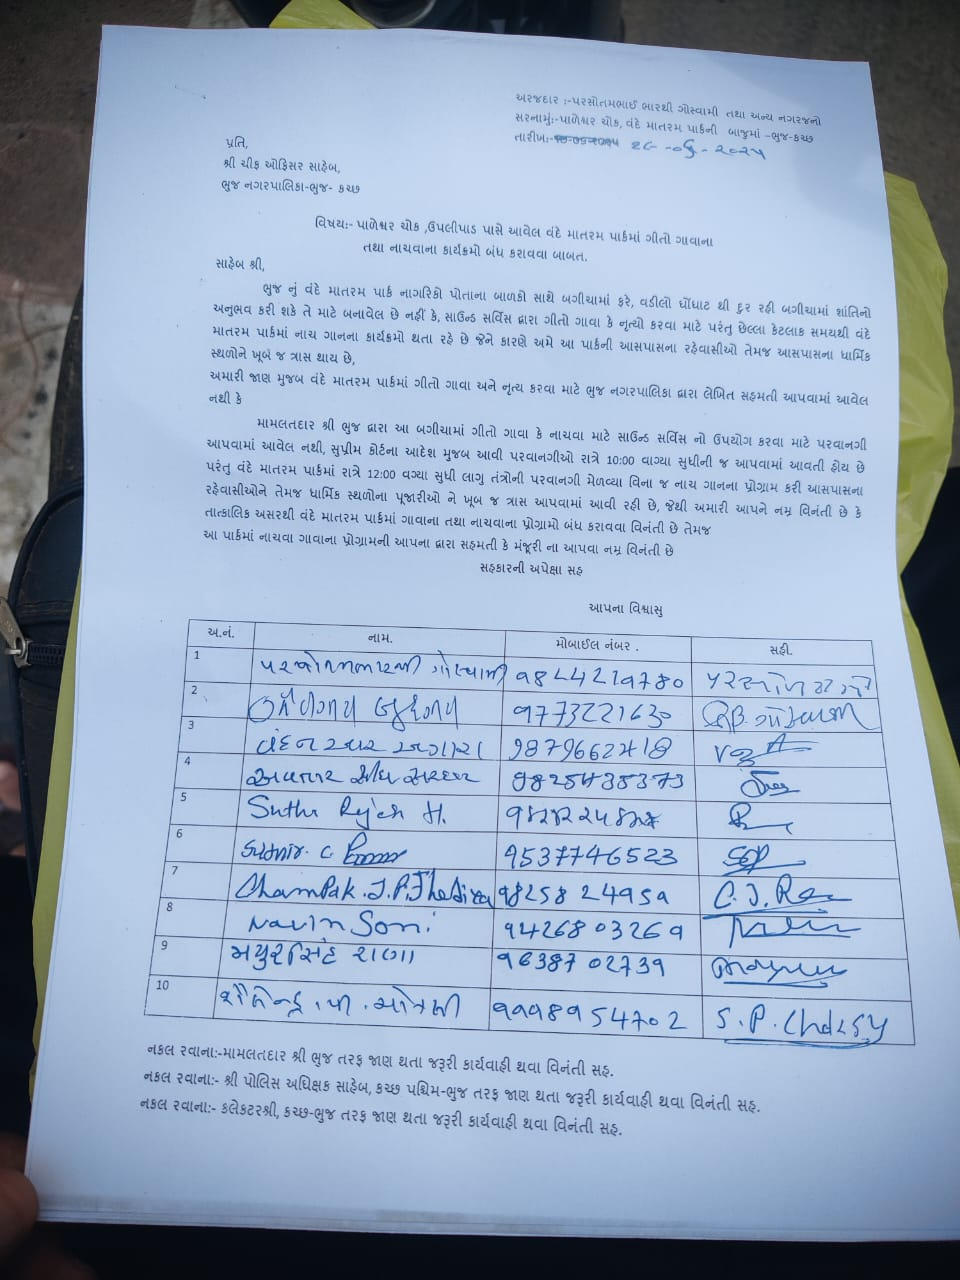 અરજદાર :-પરસોતમભાઈ ભારથી ગોસ્વામી તથા અન્ય નગરજનો
સરનામું:-પાળેશ્વર ચોક, વંદે માતરમ પાર્કની બાજુમાં -ભુજ-કચ્છ
તારીખ:-
પ્રતિ,
શ્રી ચીફ ઓફિસર સાહેબ,
ભુજ નગરપાલિકા-ભુજ- કચ્છ
વિષય:- પાળેશ્વર ચોક ,ઉપલીપાડ પાસે આવેલ વંદે માતરમ પાર્કમાં ગીતો ગાવાના
તથા નાચવાના કાર્યક્રમો બંધ કરાવવા બાબત.
સાહેબ શ્રી,
ભુજ નું વંદે માતરમ પાર્ક નાગરિકો પોતાના બાળકો સાથે બગીચામાં ફરે, વડીલો ઘોંઘાટ થી દુર રહી બગીચામાં શાંતિનો
અનુભવ કરી શકે તે માટે બનાવેલ છે નહીં કે, સાઉન્ડ સર્વિસ દ્વારા ગીતો ગાવા કે નૃત્યો કરવા માટે પરંતુ છેલ્લા કેટલાક સમયથી વંદે
માતરમ પાર્કમાં નાચ ગાનના કાર્યક્રમો થતા રહે છે જેને કારણે અમે આ પાર્કની આસપાસના રહેવાસીઓ તેમજ આસપાસના ધાર્મિક
સ્થળોને ખૂબ જ ત્રાસ થાય છે,
અમારી જાણ મુજબ વંદે માતરમ પાર્કમાં ગીતો ગાવા અને નૃત્ય કરવા માટે ભુજ નગરપાલિકા દ્વારા લેખિત સહમતી આપવામાં આવેલ
નથી કે
મામલતદાર શ્રી ભુજ દ્વારા આ બગીચામાં ગીતો ગાવા કે નાચવા માટે સાઉન્ડ સર્વિસ નો ઉપયોગ કરવા માટે પરવાનગી
આપવામાં આવેલ નથી, સુપ્રીમ કોર્ટના આદેશ મુજબ આવી પરવાનગીઓ રાત્રે 10:00 વાગ્યા સુધીની જ આપવામાં આવતી હોય છે
પરંતુ વંદે માતરમ પાર્કમાં રાત્રે 12:00 વગ્યા સુધી લાગુ તંત્રોની પરવાનગી મેળવ્યા વિના જ નાચ ગાનના પ્રોગ્રામ કરી આસપાસના
રહેવાસીઓને તેમજ ધાર્મિક સ્થળોના પૂજારીઓ ને ખૂબ જ ત્રાસ આપવામાં આવી રહી છે, જેથી અમારી આપને નમ્ર વિનંતી છે કે
તાત્કાલિક અસરથી વંદે માતરમ પાર્કમાં ગાવાના તથા નાચવાના પ્રોગ્રામો બંધ કરાવવા વિનંતી છે તેમજ
આ પાર્કમાં નાચવા ગાવાના પ્રોગ્રામની આપના દ્વારા સહમતી કે મંજૂરી ના આપવા નમ્ર વિનંતી છે
સહકારની અપેક્ષા સહ
આપના વિશ્વાસુ
અ.નં. નામ. મોબાઈલ નંબર . સહી.
1 ગોસ્વામી 9824219780
2 9773221630
3 9879662418
4 અવતાર સીંઘ સરદાર 9825435373
5 Suthar Rajesh H.
6 9537746523
7 Champak. J. 98258 24959 C. J.
8 Navin Soni 9426803269
9 મયુરસિંહ રાણા 9638702739
10 શૈલેન્દ્ર . પી. 9998954702 S. P.
નકલ રવાના:-મામલતદાર શ્રી ભુજ તરફ જાણ થતા જરૂરી કાર્યવાહી થવા વિનંતી સહ.
નકલ રવાના:- શ્રી પોલિસ અધિક્ષક સાહેબ, કચ્છ પશ્ચિમ-ભુજ તરફ જાણ થતા જરૂરી કાર્યવાહી થવા વિનંતી સહ.
નકલ રવાના:- કલેક્ટરશ્રી, કચ્છ-ભુજ તરફ જાણ થતા જરૂરી કાર્યવાહી થવા વિનંતી સહ.